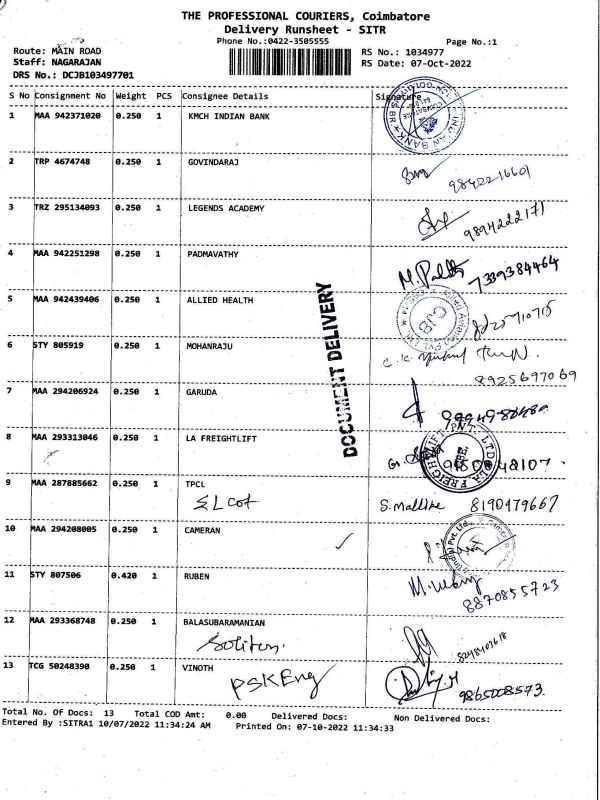 THE PROFESSIONAL COURIERS, Coimbatore
Delivery Runsheet - SITR
Phone No.:0422-3505555
Page No.:1
Route: MAIN ROAD
RS No.: 1034977
Staff: NAGARAJAN
RS Date: 07-Oct-2022
DRS No.: DCJB103497701
S No Consignment No Weight PCS Consignee Details Signature
1 MAA 942371020 0.250 1 KMCH INDIAN BANK
2 TRP 4674748 0.250 1 GOVINDARAJ
3 TRZ 295134093 0.250 1 LEGENDS ACADEMY
9894222171
4 MAA 942251298 0.250 1 PADMAVATHY
7339384464
5 MAA 942439406 0.250 1 ALLIED HEALTH
CJB
DOCUMENT DELIVERY
6 STY 805919 0.250 1 MOHANRAJU
8925697069
7 MAA 294206924 0.250 1 GARUDA
8 MAA 293313046 0.250 1 LA FREIGHTLIFT
LA FREIGHTLIFT PVT. LTD
9 MAA 287885662 0.250 1 TPCL
ELCot
8190479667
10 MAA 294208005 0.250 1 CAMERAN
11 STY 807506 0.420 1 RUBEN
8870855723
12 MAA 293368748 0.250 1 BALASUBARAMANIAN
Soliton.
13 TCG 50248390 0.250 1 VINOTH
PSK Eng
9865008573.
Total No. Of Docs: 13 Total COD Amt: 0.00 Delivered Docs: Non Delivered Docs:
Entered By :SITRA1 10/07/2022 11:34:24 AM Printed On: 07-10-2022 11:34:33